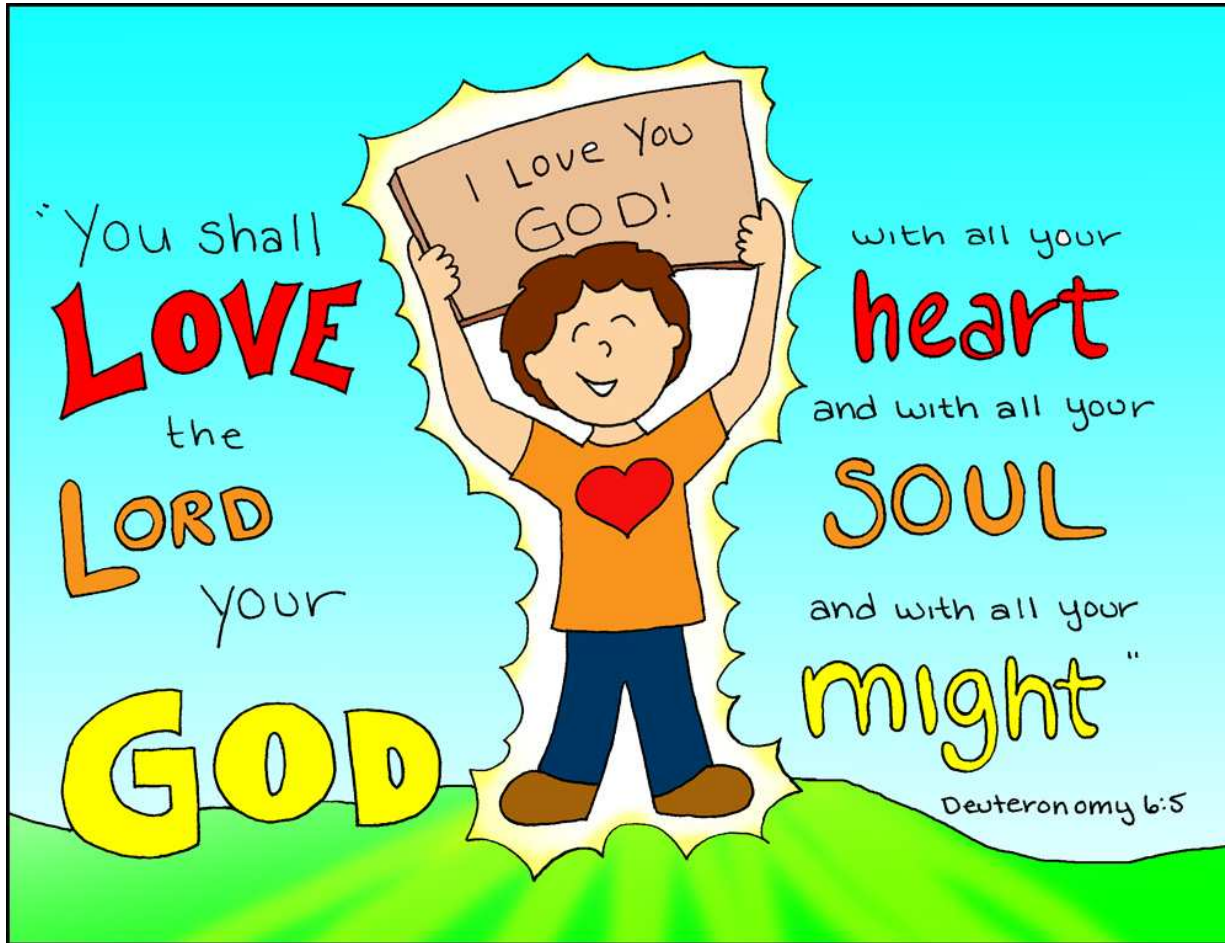 "You shall
LOVE
the
LORD
your
GOD
I Love You
GOD!
with all your
heart
and with all your
SOUL
and with all your
might"
Deuteronomy 6:5